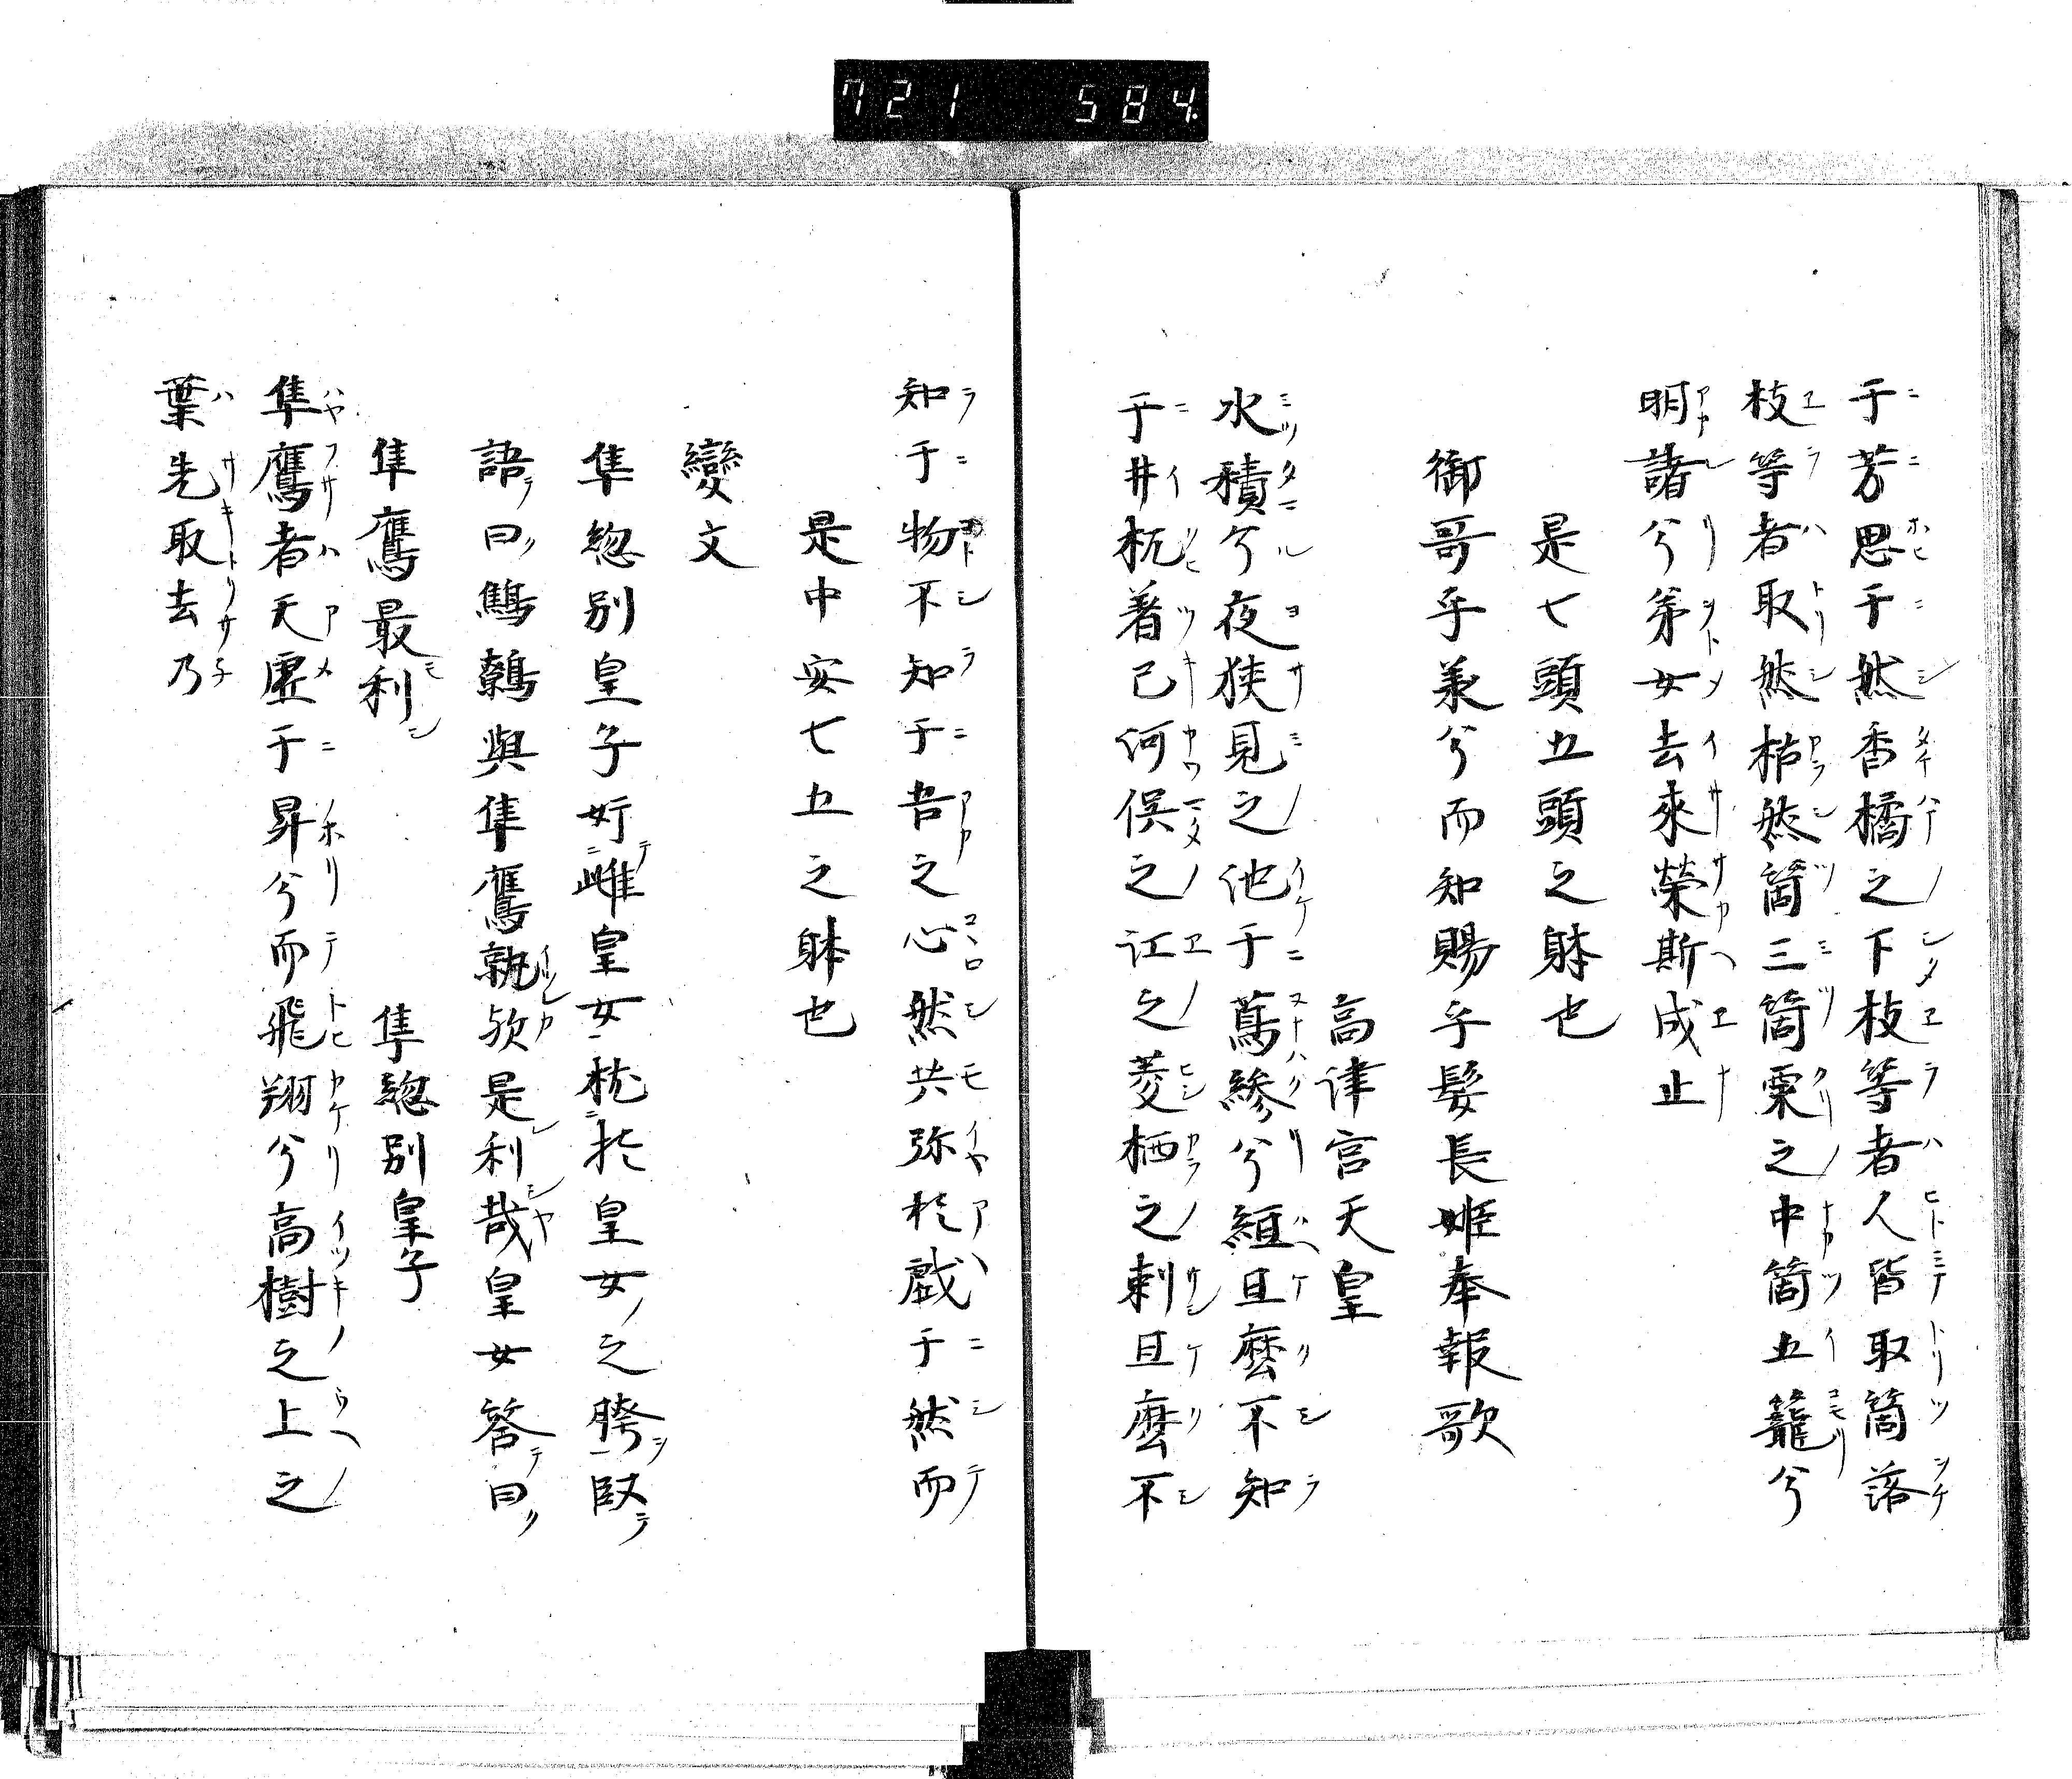 721 584.
于芳思于然香橘之下枝等者人皆取箇落
枝等者取然枯然箇三箇栗之中箇五籠兮
明諸兮弟女去來榮斯成止
是七頭五頭之躰也
御哥乎兼兮而知賜乎髮長姫奉報歌
高津宮天皇
水積兮夜狹見之池于蔿縿兮縆且麼不知
于井杭著己何俣之江之菱栖之刺且麼不
知于物不知于吾之心然共弥於戯于然而
是中安七五之躰也
變文
隼總別皇子妤雌皇女枕於皇女之膝臥
語曰鷦鷯與隼鷹孰欤是利哉皇女答曰
隼鷹最利 隼總別皇子
隼鷹者天虚于昇兮而飛翔兮高樹之上之
葉先取去乃